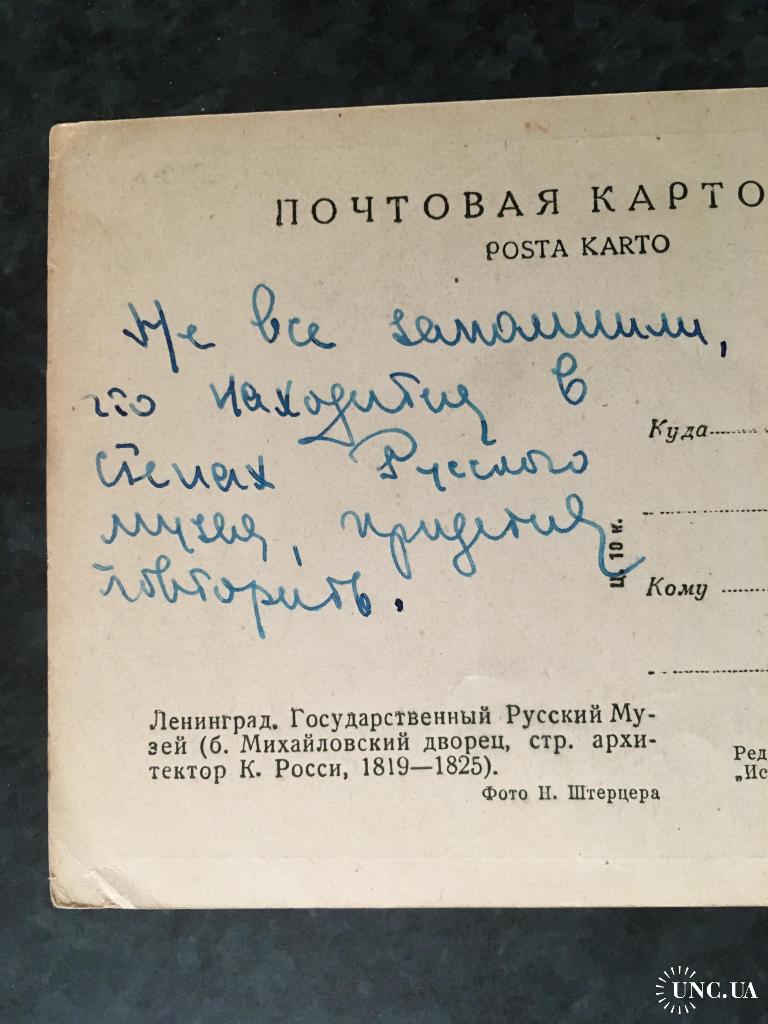 ПОЧТОВАЯ КАРТО
POSTA KARTO
Не все запомнили,
что находится в
стенах Русского
музея, придется
повторить.
Куда
Ц. 10 к.
Кому
Ленинград. Государственный Русский Му-
зей (б. Михайловский дворец, стр. архи-
тектор К. Росси, 1819—1825).
Фото Н. Штерцера
Ред
„Ис
UNC.UA